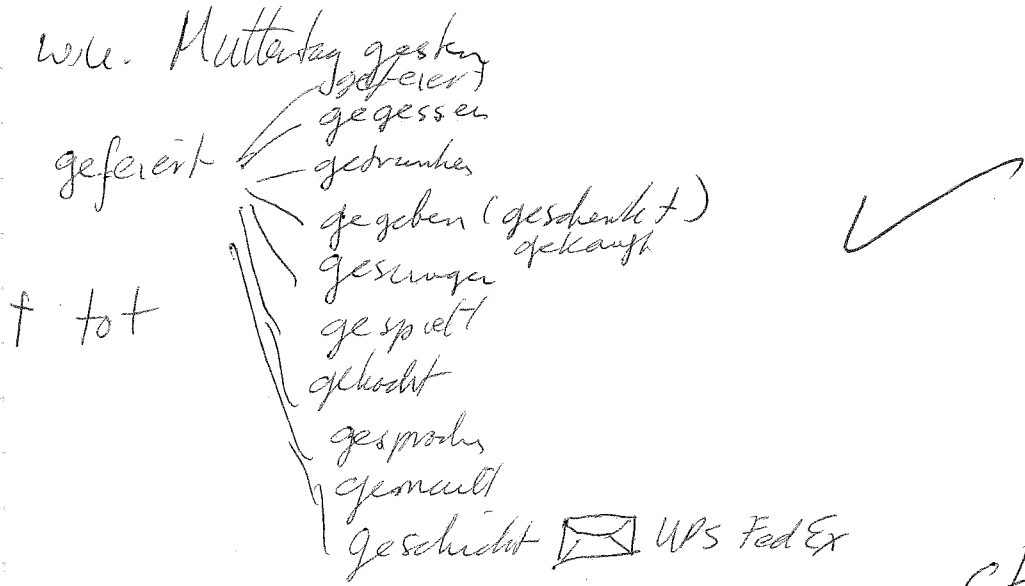 Muttertag gestern
gefeiert
gegessen
gefeiert
getrunken
gegeben (geschenkt)
gekauft
gesungen
† tot
gespielt
gekocht
gesprochen
gemailt
geschickt UPS FedEx